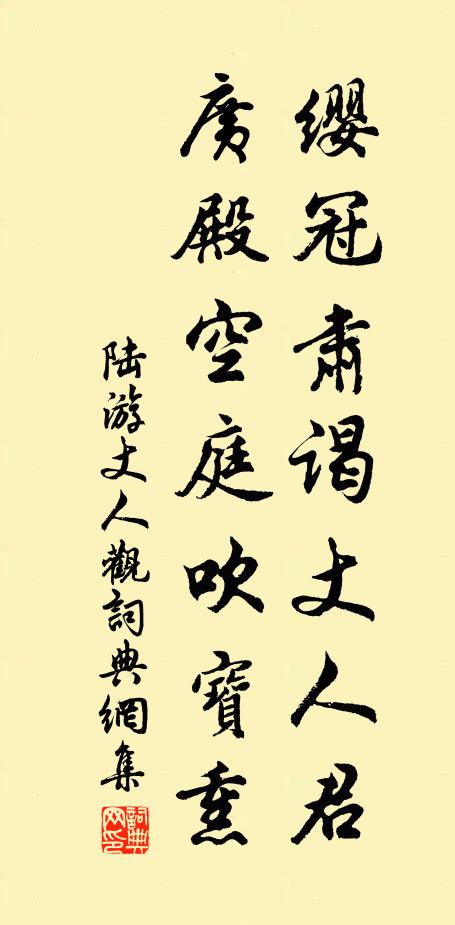 缨冠肃谒丈人君
廣殿空庭吹寶熏
陆游丈人觀詞典網集
詞典网印